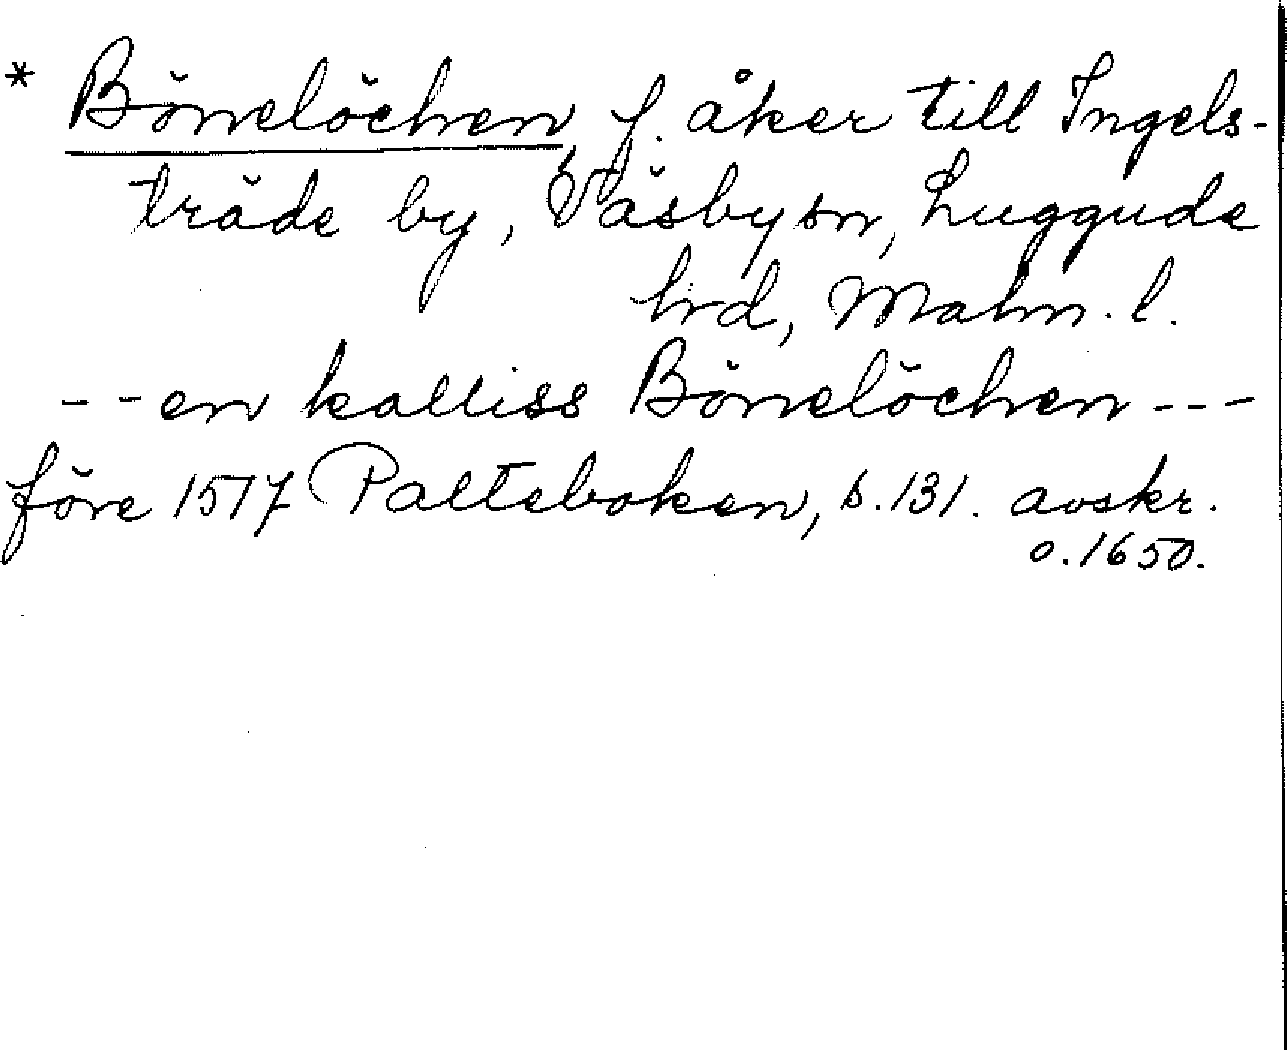 * Bönelöchen, f. åker till Ingels-
träde by, Väsby sn, Luggude
hrd, Malm. l.
-- en kalliss Bönelöchen ---
före 1517 Palteboken, s. 131. avskr.
o. 1650.